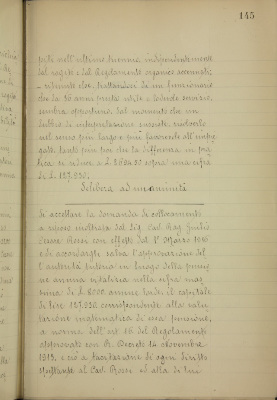 145
fatte nell'ultimo triennio, indipendentemente
dal sogito e dal Regolamento organico accennato
ritenuto che, trattandosi di un funzionario
che da 36 anni presta utile e lodevole servizio,
sembra opportuno, dal momento che un
dubbio di interpretazione sussiste, risolverlo
nel senso più largo e più favorevole all'impie
gato, tanto più poi che la differenza in pra
tica si riduce a L. sopra una cifra
di L. 127.930,
Delibera ad unanimità
di accettare la domanda di collocamento
a riposo inoltrata dal Sig. Cav. Rag. Giulio
Cesare Rossi con effetto dal 1° Marzo
e di accordargli, salva l'approvazione del
l'autorità tutoria in luogo della pensio
ne annua vitalizia nella cifra mas
sima di L. 8000 annue lorde, il capitale
di lire 127.930 corrispondente alla valu
tazione matematica di essa pensione,
a norma dell'art. 16 del Regolamento
approvato con R. Decreto 14 Novembre
1913, e ciò a tacitazione di ogni diritto
spettante al Cav. Rossi ed alla di lui